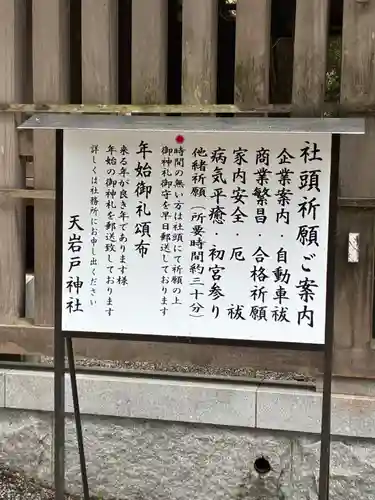 社頭祈願ご案内
企業案内・自動車祓
商業繁昌　合格祈願
家内安全・厄　祓
病気平癒・初宮参り
他緒祈願（所要時間約三十分）
時間の無い方は社頭にて祈願の上
御神札御守を早日郵送しております
年始御礼頒布
来る年が良き年であります様
年始の御神札を郵送致しております
詳しくは社務所にお申し出ください
天岩戸神社